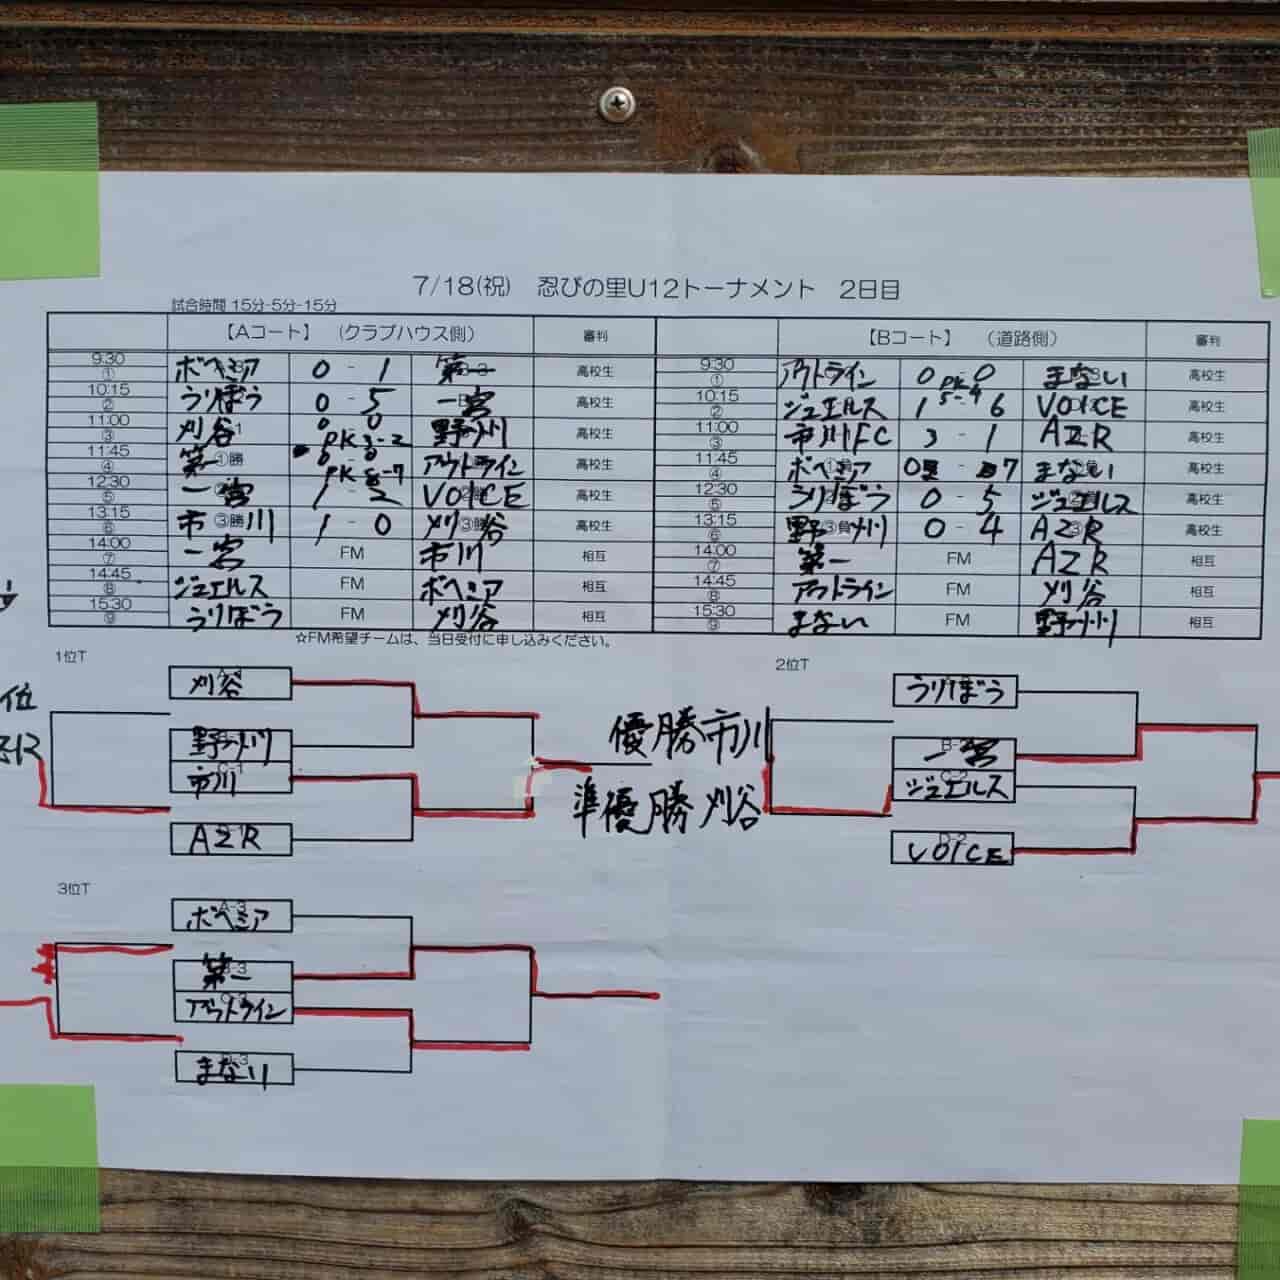 7/18(祝) 忍びの里U12トーナメント 2日目
試合時間 15分-5分-15分
【Aコート】 (クラブハウス側) 審判 【Bコート】 (道路側) 審判
9:30 ① ボヘミア 0 - 1 第一 高校生 9:30 ① アウトライン 0 - 0 PK 5-4 まない 高校生
10:15 ② うりぼう 0 - 5 一宮 高校生 10:15 ② ジュエルス 1 - 6 VOICE 高校生
11:00 ③ 刈谷 0 - 0 PK 3-2 野々川 高校生 11:00 ③ 市川FC 3 - 1 AZR 高校生
11:45 ④ 第一 ①勝 0 - 0 PK 8-7 アウトライン 高校生 11:45 ④ ボヘミア 0 - 7 まない 高校生
12:30 ⑤ 一宮 1 - 2 VOICE 高校生 12:30 ⑤ うりぼう 0 - 5 ジュエルス 高校生
13:15 ⑥ 市川 ③勝 1 - 0 刈谷 ③勝 高校生 13:15 ⑥ 野々川 ③負 0 - 4 AZR 高校生
14:00 ⑦ 一宮 FM 市川 相互 14:00 ⑦ 第一 FM AZR 相互
14:45 ⑧ ジュエルス FM ボヘミア 相互 14:45 ⑧ アウトライン FM 刈谷 相互
15:30 ⑨ うりぼう FM 刈谷 相互 15:30 ⑨ まない FM 野々川 相互
☆FM希望チームは、当日受付に申し込みください。
1位T
位
刈谷
野々川
市川
AZR
優勝 市川
準優勝 刈谷
2位T
うりぼう
一宮
ジュエルス
VOICE
3位T
ボヘミア
第一
アウトライン
まない